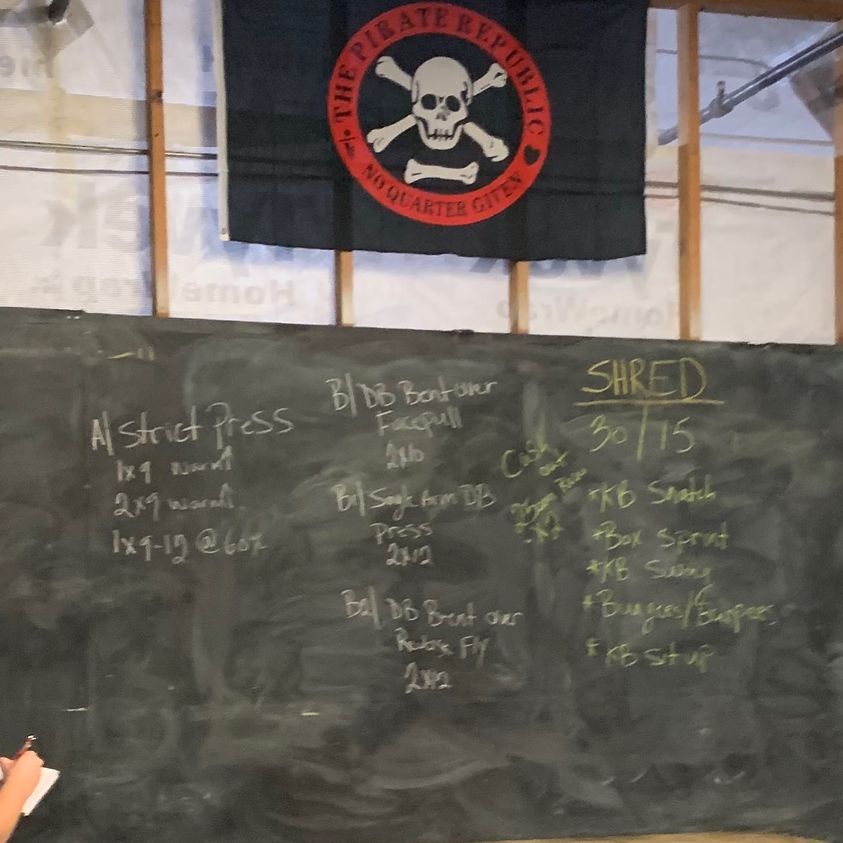 THE PIRATE REPUBLIC
NO QUARTER GIVEN
HomeWrap
HomeWrap
A/ Strict Press
1x9 warmt
2x9 warmt
1x9-12 @ 60%
B/ DB Bent over
Facepull
B1/ Single Arm DB
Press
2x12
B2/ DB Bent over
Fly
2x12
Cash
out
SHRED
30/15
*KB Snatch
*Box Sprint
*KB Swing
*Bungees/Burpees
*KB sit up